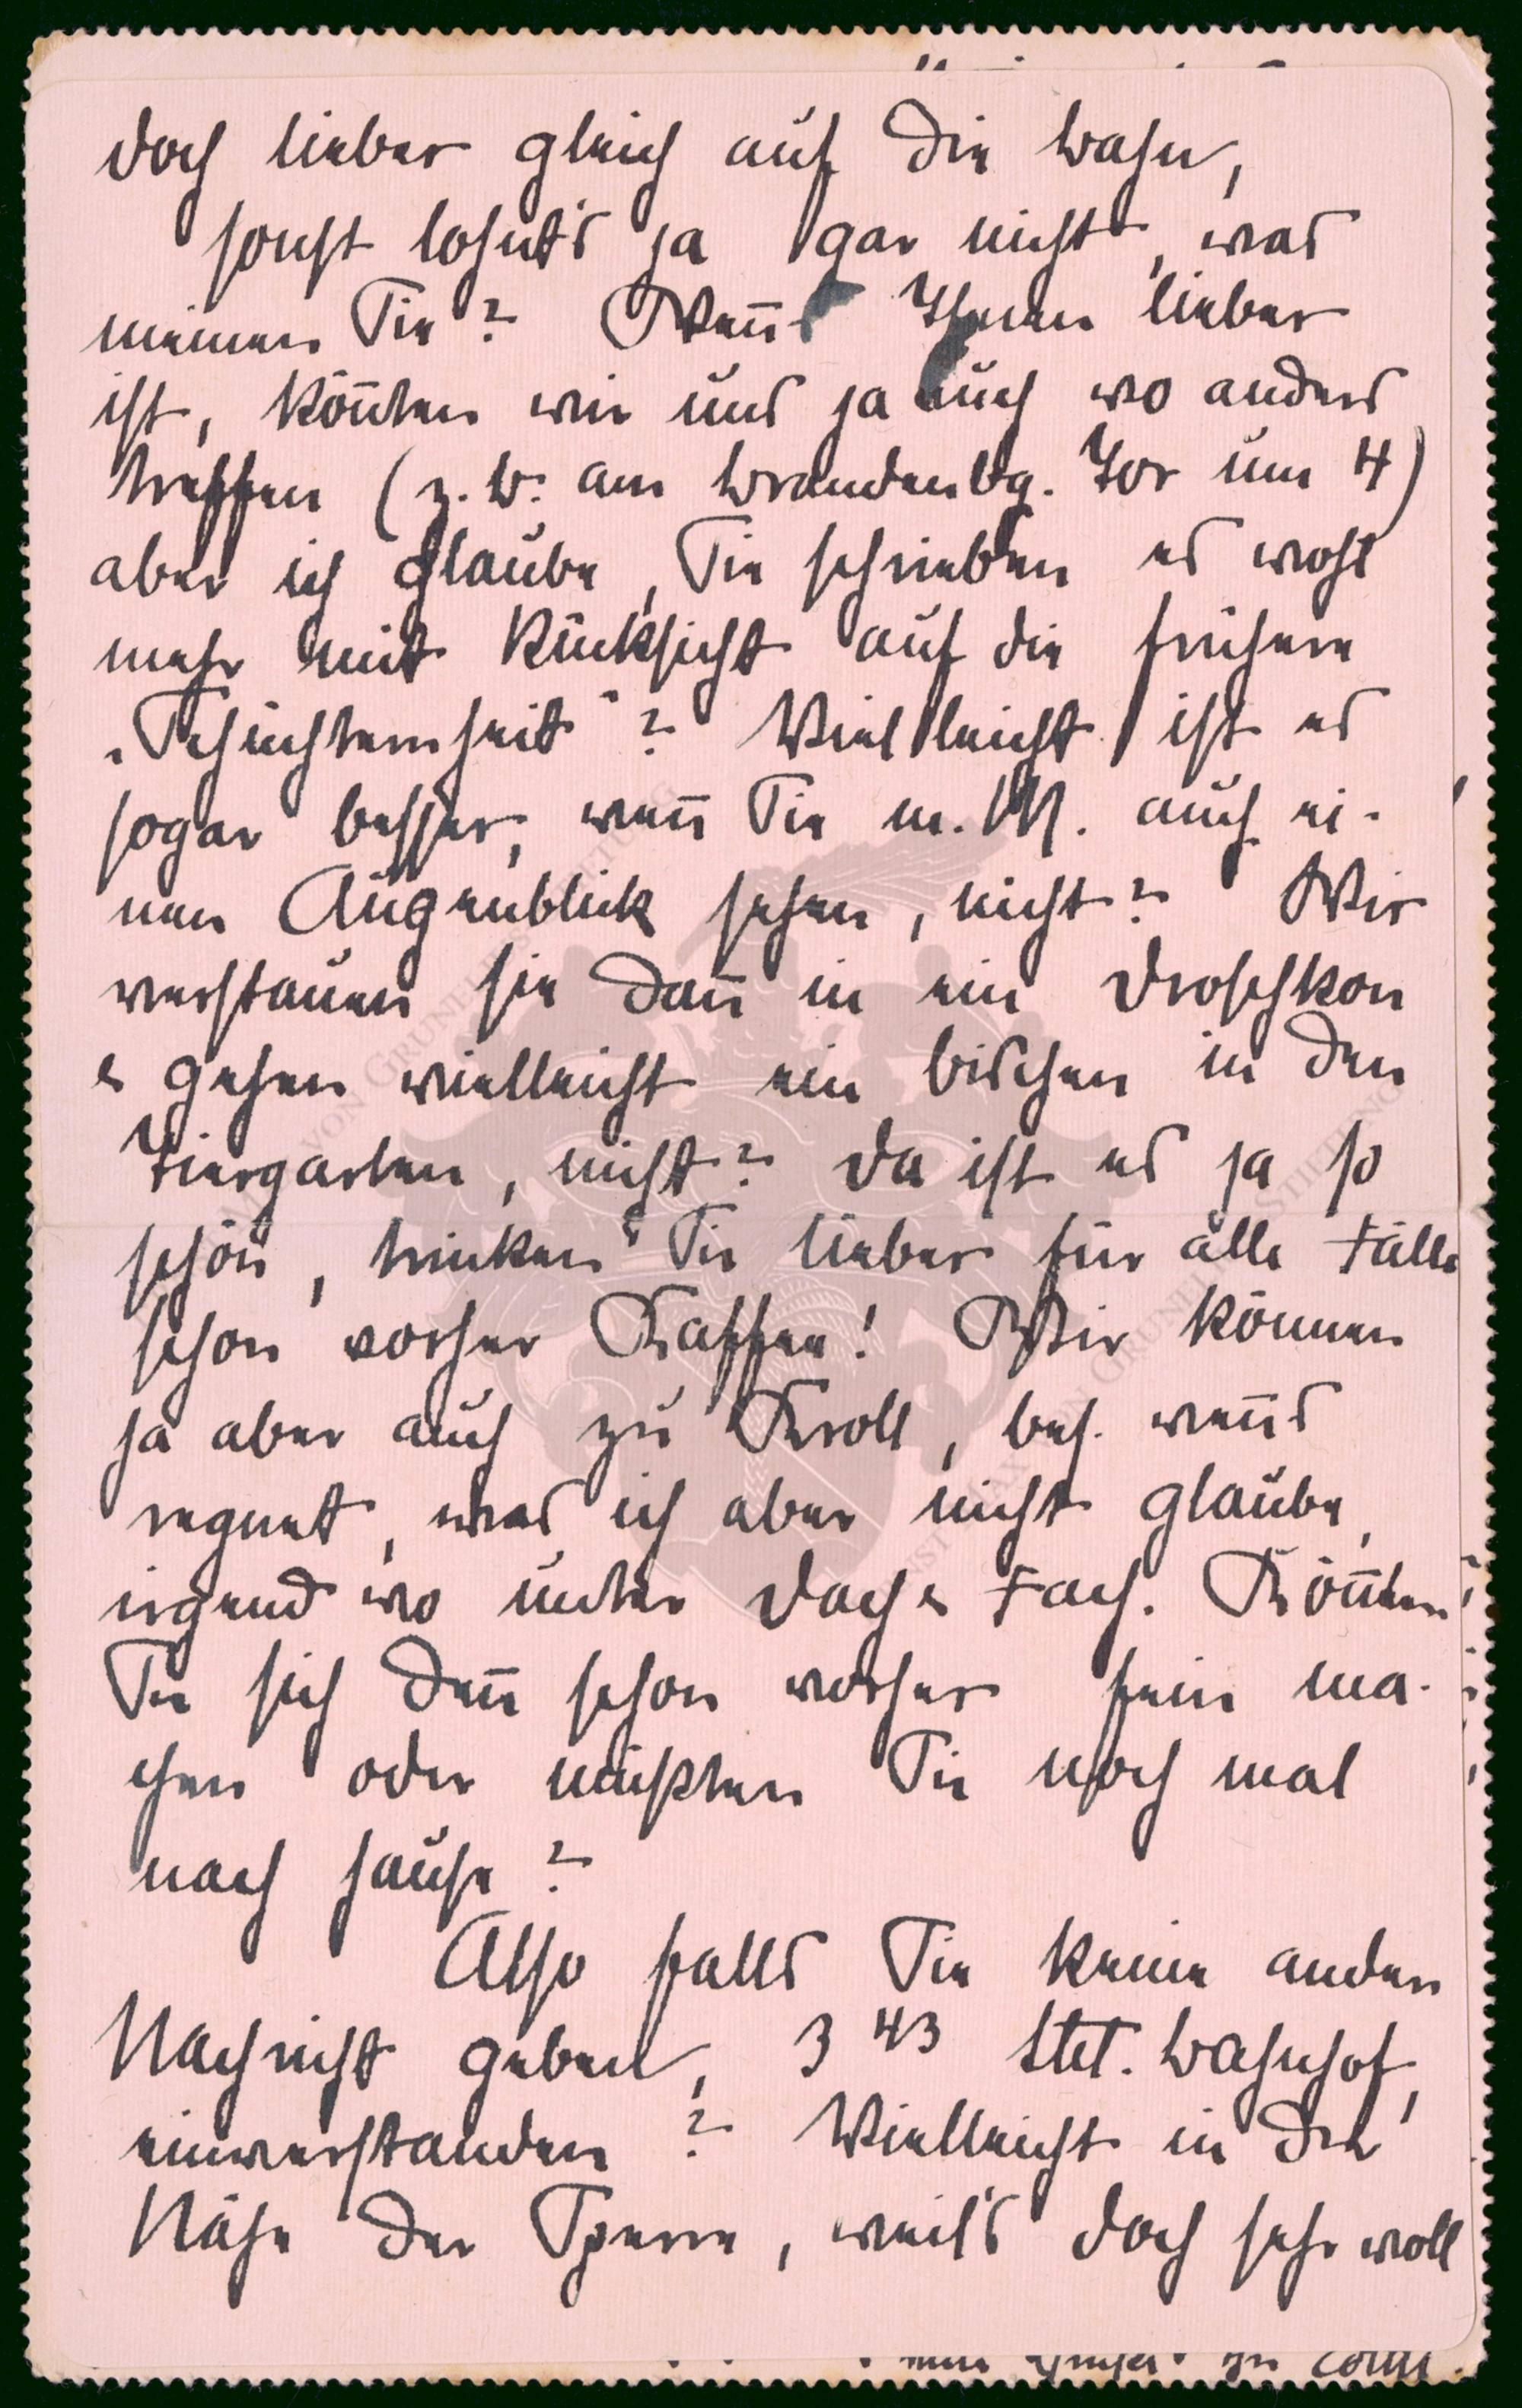 doch lieber gleich auf die Bahn,
sonst lohnt's ja gar nicht, was
meinen Sie? Wenn's Ihnen lieber
ist, könnten wir uns ja auch wo anders
treffen (z. B. am Brandenbg. Tor um 4)
aber ich glaube, Sie schrieben es wohl
mehr mit Rücksicht auf die frühere
„Schüchternheit"? Vielleicht ist es
sogar besser, wenn Sie m. M. auch ei-
nen Augenblick sehen, nicht? Wir
verstauen sie dann in ein Droschkon
& gehen vielleicht ein bischen in den
Tiergarten, nicht? Da ist es ja so
schön, trinken Sie lieber für alle Fälle
schon vorher Kaffee! Wir können
ja aber auch zu Kroll, bes. wenns
regnet, was ich aber nicht glaube,
irgend wo unter Dach & Fach. Könnten
Sie sich denn schon vorher fein ma-
chen oder müßten Sie noch mal
nach Hause?
Also falls Sie keine andern
Nachricht geben, 3 43 Stet. Bahnhof,
einverstanden? Vielleicht in der
Nähe der Sperre, weil's doch sehr voll